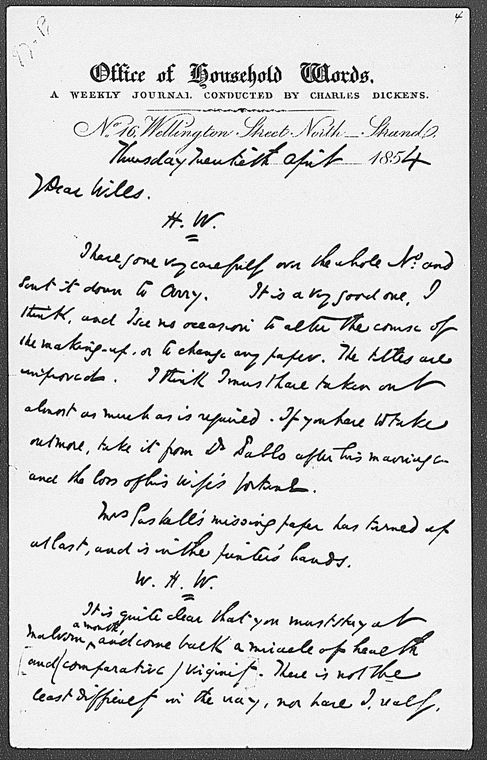 4
Office of Household Words,
A WEEKLY JOURNAL CONDUCTED BY CHARLES DICKENS.
No. 16, Wellington Street North, Strand.
Thursday Twentieth April 1854
My Dear Wills.
H. W.
I have gone very carefully over the whole No. and
sent it down to Avery. It is a very good one, I
think, and I see no occasion to alter the course of
the making-up, or to change any paper. The titles are
improved. I think I must have taken out
almost as much as is required. If you have to take
out more, take it from Dr Pablos after his marriage
and the loss of his wife's fortune.
Mrs Gaskell's missing paper has turned up
at last, and is in the printer's hands.
W. H. W.
It is quite clear that you must stay at
Malvern a month, and come back a miracle of health
and (comparative) virginity. There is not the
least difficulty in the way, nor have I, really,